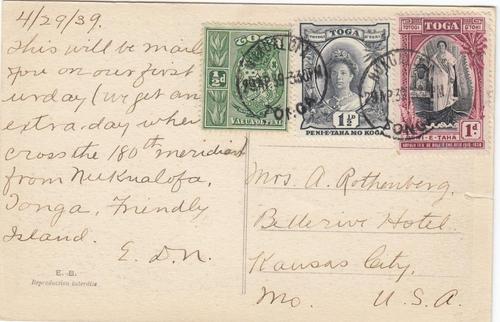 4/29/39.
This will be mail
you on our first
urday (we get an
extra day when
cross the 180th meridian
from Nukualofa,
Tonga, Friendly
Island.
E. D. N.
E. B.
Reproduction interdite
½d
TOGA
1½D
PENI-E-TAHA MO KOGA
TOGA
1d
PENI-E-TAHA
NUKUALOFA
29 AP 39 3-30PM
TONGA
Mrs. A. Rothenberg,
Bellerive Hotel.
Kansas City,
Mo. U. S. A.